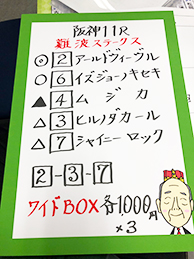 阪神11R
難波ステークス
◎2アールドヴィーヴル
○6イズジョーノキセキ
▲4ムジカ
△3ヒルノダカール
△7シャイニーロック
2-3-7
ワイドBOX 各1,000円
×3